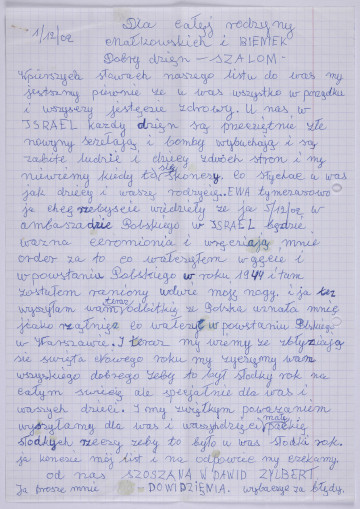 1/12/02
Dla całej rodziny
Małkowskich i BIEMEK
Dobry dzięn — SZALOM -
W pierszych słowach naszego listu do was my
jestesmy piewnie ze u was wszystko w porządku
i wszyscy jestęscie zdrowy. U nas w
ISRAEL kazdy dzięn są przeciętnie złe
nowyny strzelają i bomby wybuchają i są
zabite ludzie i dziecy zdwoch stron i my
niewiemy kiedy to się skonczy. Co stychac u was
jak dziecy i waszę rodzycy. EWA tymczasowo
ja chcę zebyscie wiedziely ze ja 5/12/02 w
ambasadzie Polskiego w ISRAEL będzie
wazna ceromionia i wręcziają mnie
order za to co walczyłem w gęscie i
w powstania Polskiego w roku 1944 i tam
zostałem raniony w dwie moje nogy. i ja tez
wysyłam wam teraz odbitkię z Polska uznała mnię
jako rządnięn co walczył w powstaniu Polskiego
w Warszawie. I teraz my wiemy ze zblyzają
się swięta nowego roku my zyczymy wam
wszyskiego dobrego zeby to był słodki rok na
całym swiecię ale specjalnie dla was i
waszych dzieci. I my zwięlkym powazaniem
wysyłamy dla was i waszych dziecy małe paczkię
słodkych rzeczy zeby to było u was słodki rok.
ja konczie mój list i na odpowiec my czekamy.
od nas SZOSZANA W DAWID ZYLBERT
Ja prosze mnie DOWIDZIĘMIA. wybaczyc za błędy.